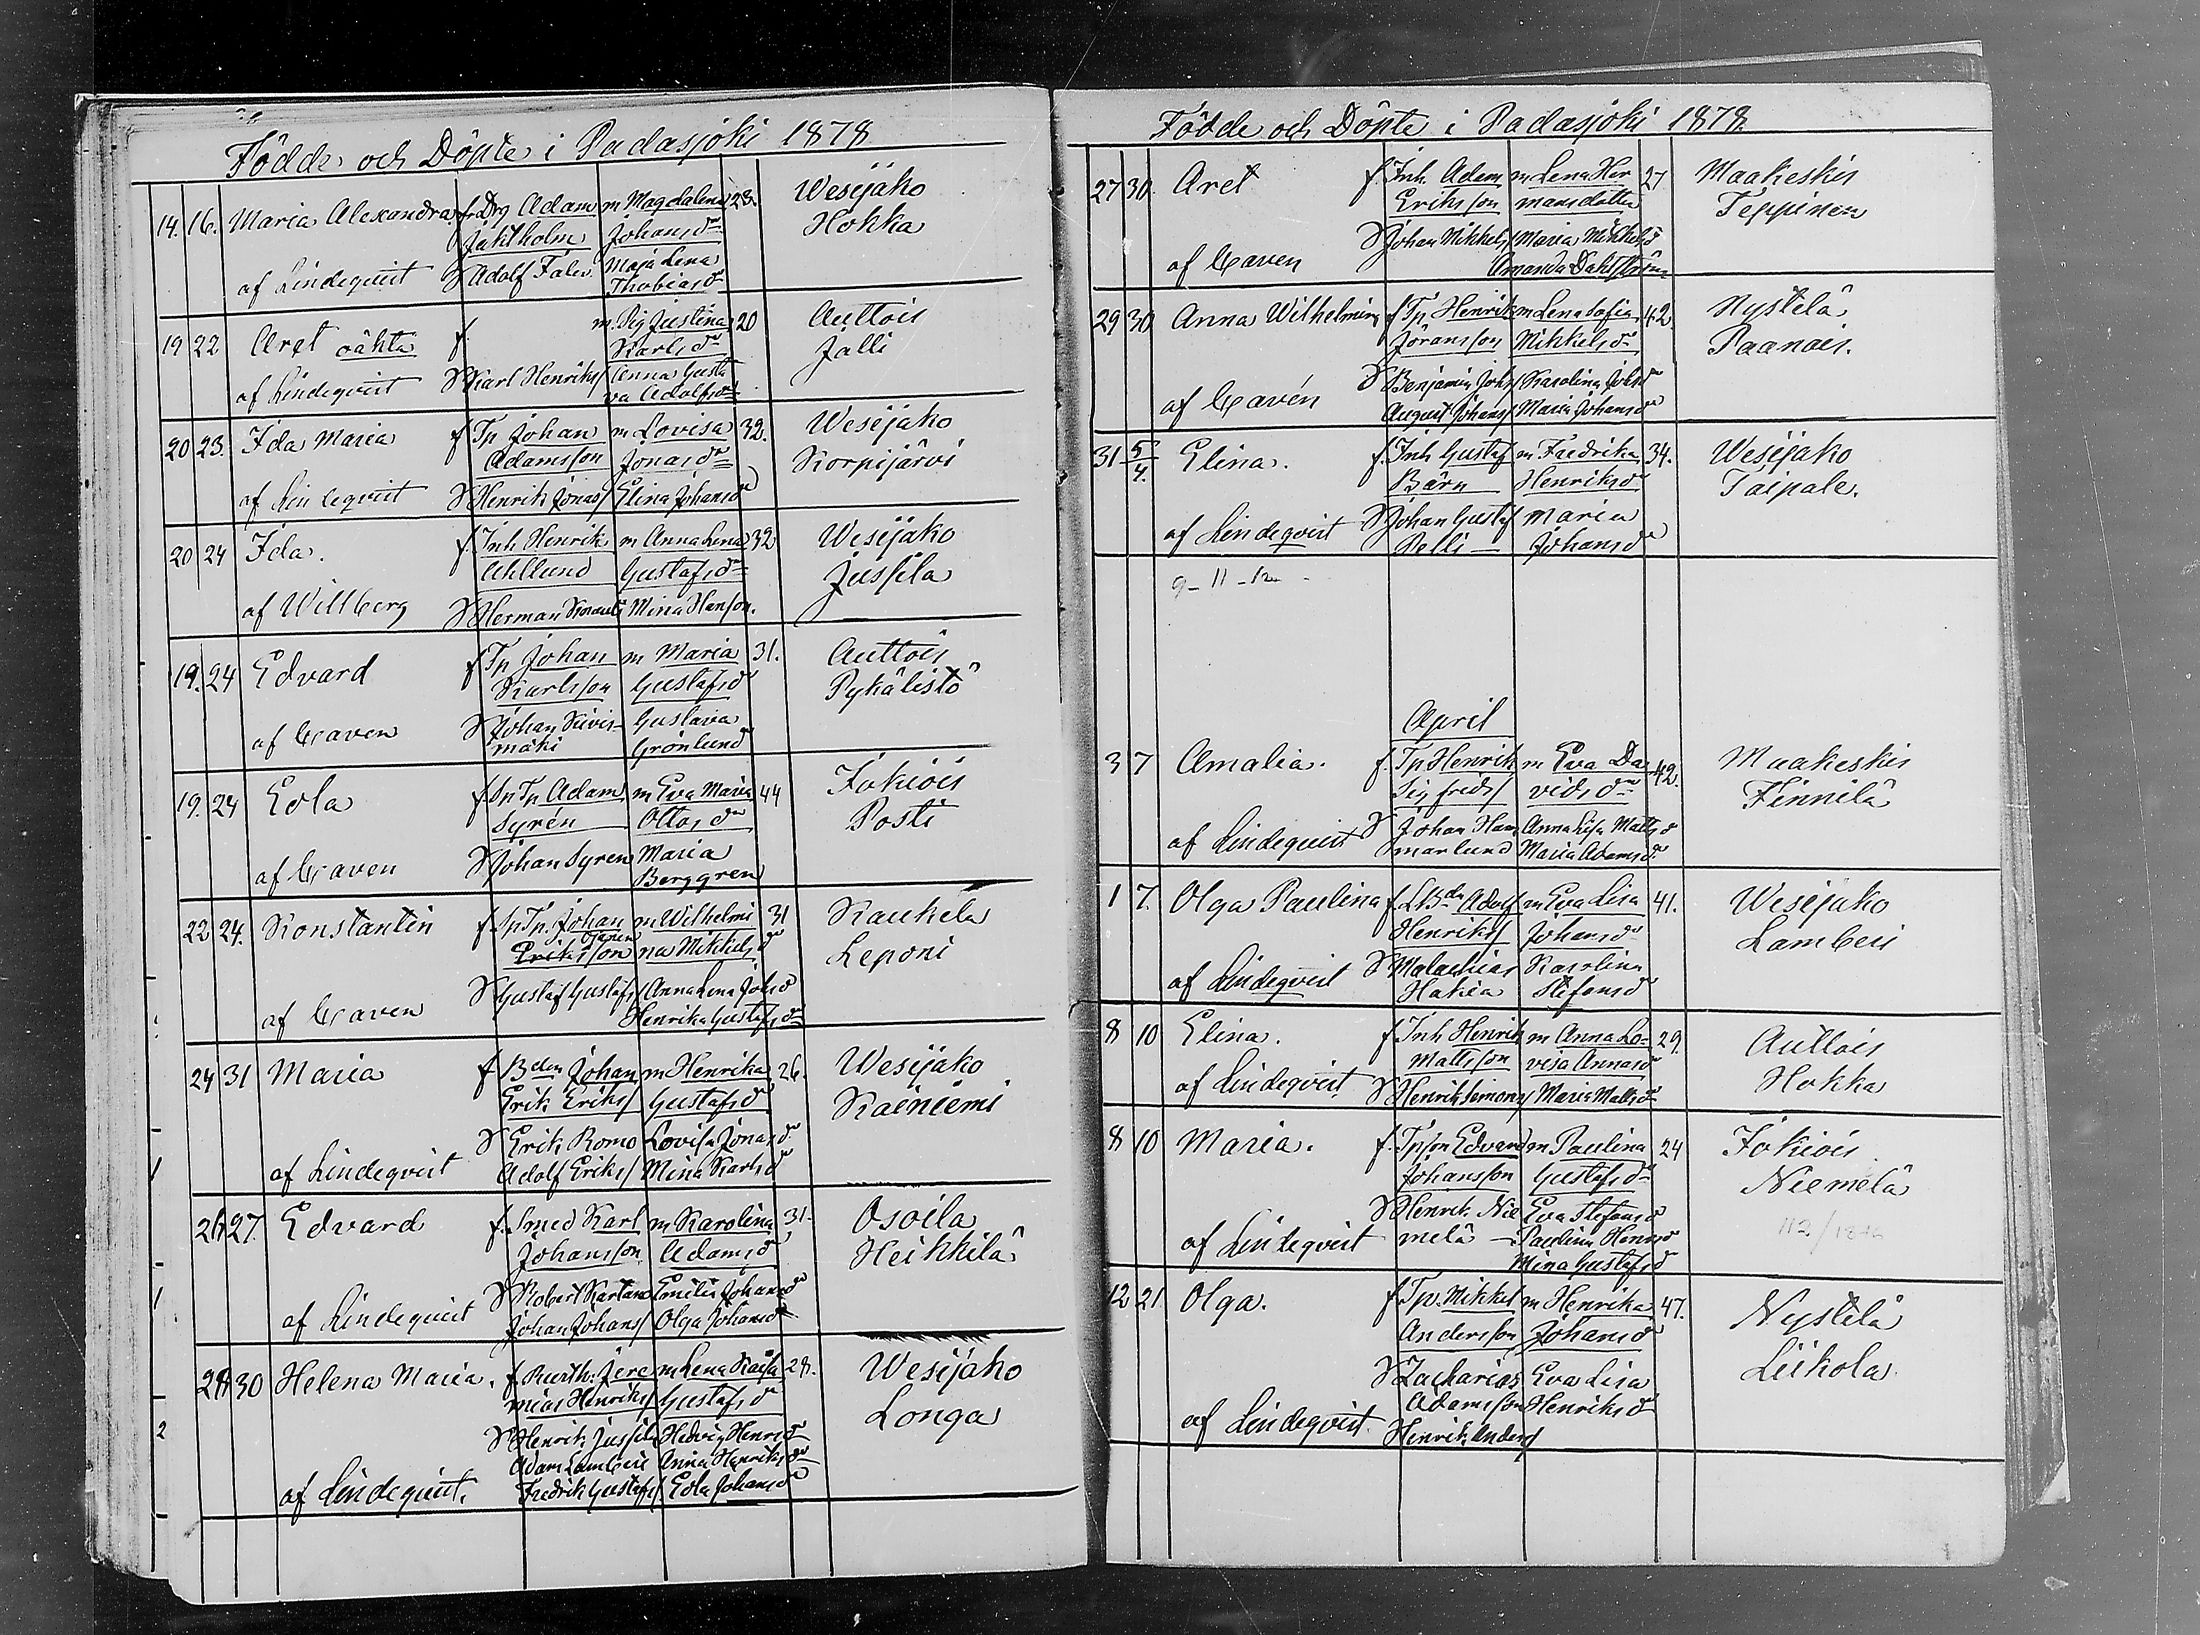 Födde och Döpte i Padasjoki 1878
14. 16. Maria Alexandra f. Drg Adam m Magdalena 23. Wesijako
Jaktholm Johansdr Hokka
af Lindeqvist Adolf Falen Maja Lena
Thobiasdr
19 22 Aret oäkta f. m. Pig Justina 20 Auttois
Karlsdr Jalli
af Lindeqvist Karl Henriks/ Anna Gusta
va Adolfsdr
20 23. Ida Maria f Tp Johan m Lovisa 32. Wesijako
Adamsson Jonasdr Korpijärvi
af Lindeqvist Henrik Jonas/ Elina Johansdr
20 24 Ida. f. Inh Henrik m Anna Lena 32 Wesijako
Ahllund Gustafsdr Jussila
af Willberg Herman Mina Hanson.
19. 24 Edvard f Tp Johan m Maria 31. Auttois
Karlsson Gustafsd Pykälistö
af Caven Johan Kivis- Gustava
mäki Grönlund
19. 24 Edla f. Sp Tp Adam m Eva Maria 44 Jokiois
Syrén Ottosdr Posti
af Caven Johan Syren Maria
Berggren
22 24. Konstantin f. Sp Tp. Johan m Wilhelmi 31 Kaukela
Eriksson na Mikkelsd Leponi
af Caven Gustaf Gustafs/ Anna Lena Johsd
Henrika Gustafsdr
24 31 Maria f Bden Johan m Henrika 26. Wesijako
Erik Eriks/ Gustafsd Kainiemi
Erik Romo Lovisa Jonasdr
af Lindeqvist Adolf Eriks/ Mina Karlsd
26 27. Edvard f. Smed Karl m Karolina 31. Osoila
Johansson Adamsd Heikkilä
Robert Emilia Johansd
af Lindeqvist Johan Johans/ Olga Johansd
28 30 Helena Maria. f. Jere m Lena Kaisa 28. Wesijako
mias Henriks/ Gustafsd Longa
Henrik Jussila Hedvig Henrsd
Adam Lamberi Anna Henriksdr
af Lindeqvist. Fredrik Gustafs/ Edla Johansdr
Födde och Döpte i Padasjoki 1878.
27 30. Aret f. Inh. Adam m Lena Her 27 Maakeskis
Eriksson mansdotter Teppinen
Johan Mikkels/ Maria Mikkelsd
af Caven Amanda Dahlström
29 30 Anna Wilhelmina f Tp Henrik m Lena Sofia 42 Nystilä
Göransson Mikkelsdr Paanais.
Benjamin Johs/ Karolina Johsdr
af Cavén August Johans/ Maria Johansdr
31 5/4. Elina. f. Inh Gustaf m Fredrika 34. Wesijako
Bärn Henriksdr Taipale.
af Lindeqvist Johan Gustaf Maria
Pelli Johansdr
9 - 11 - 12
April
3 7 Amalia. f. Tp Henrik m Eva Da 42. Maakeskis
Sigfrids/ vidsdr Finnilä
Johan Ham Anna Lisa Mattsd
af Lindeqvist marlund Maria Adamsdr
1 7. Olga Paulina f. LBdn Adolf m Eva Lisa 41. Wesijako
Henriks/ Johansdr Lamberi
Malachias Karolina
af Lindeqvist Hakea Stefansd
8 10 Elina. f Inh Henrik m Anna Lo- 29. Auttois
Mattsson visa Annasd Hokka
af Lindeqvist Henrik Simons/ Maria Mattsdr
8 10 Maria. f. Tpson Edvard m Paulina 24 Jokiois
Johansson Gustafsdr Niemelä
Henrik Nie Eva Stefansd
af Lindeqvist melä Paulina Henrsd
Mina Gustafsd
12 21 Olga. f Tp. Mikkel m Henrika 47. Nystilä
Andersson Johansd Leikola.
Zacharias Eva Lisa
Adamsson Henriksdr
af Lindeqvist. Henrik Anders/